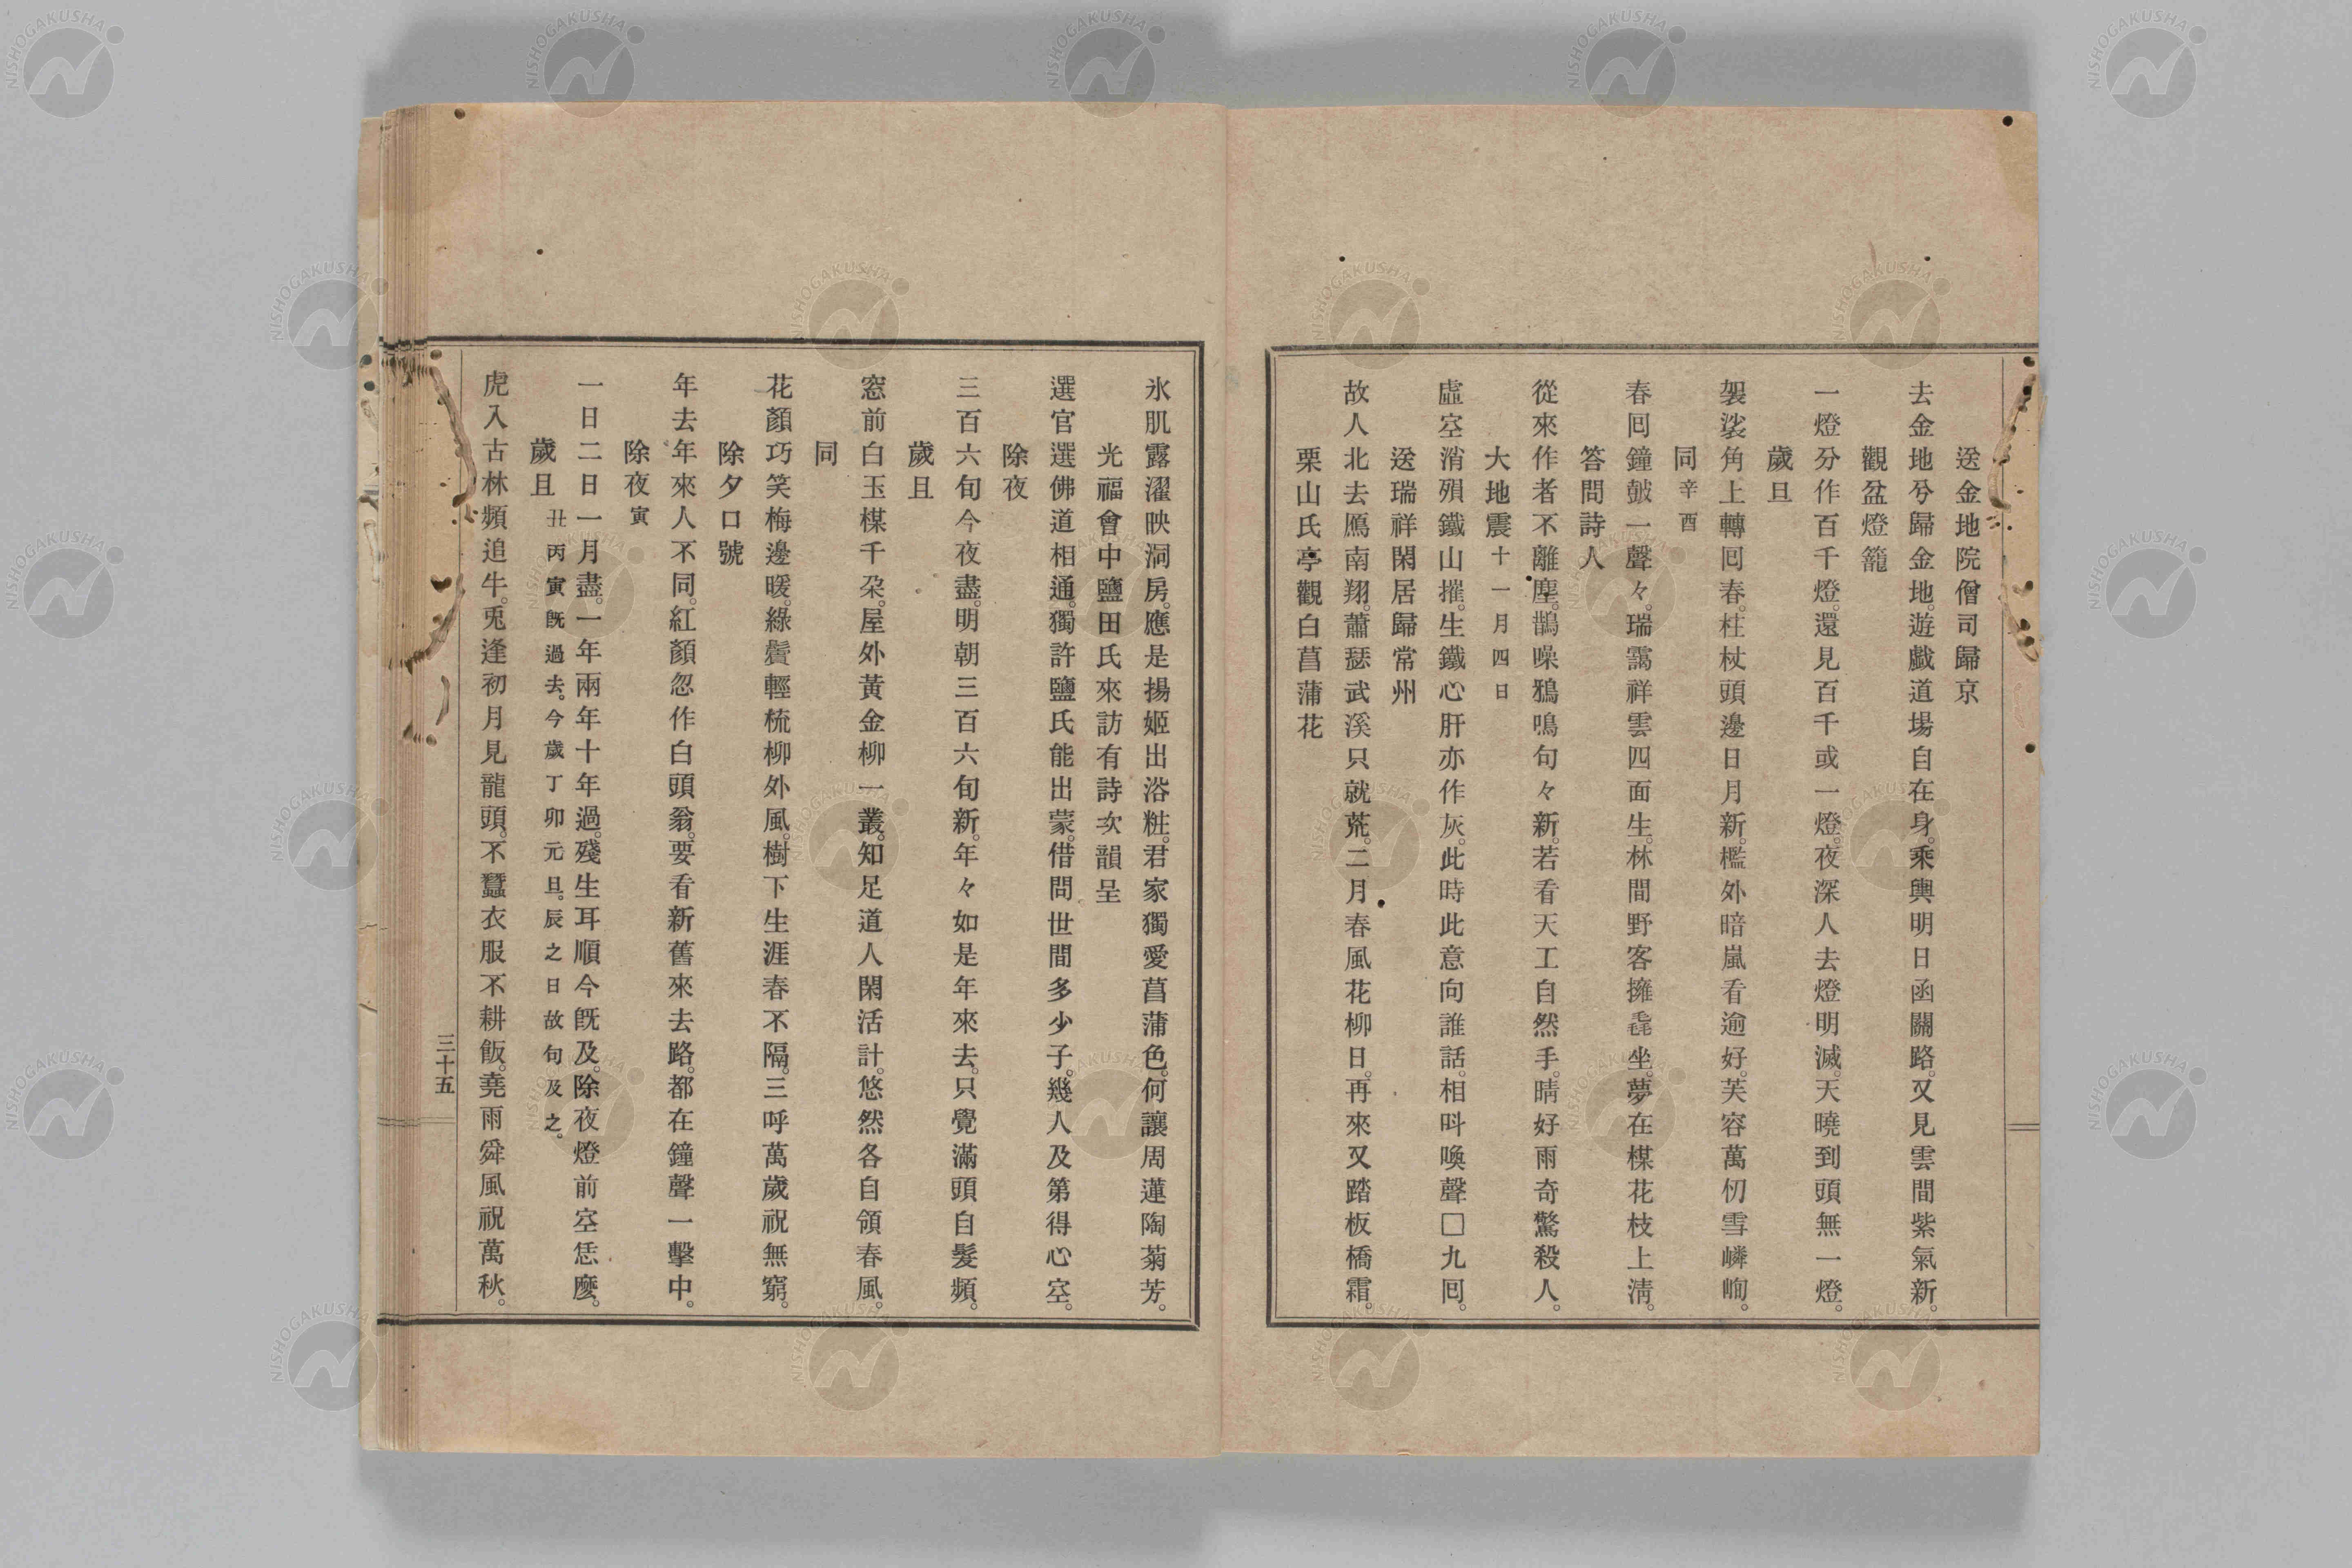 送金地院僧司歸京
去金地兮歸金地。遊戲道場自在身。乘輿明日函關路。又見雲間紫氣新。
觀盆燈籠
一燈分作百千燈。還見百千或一燈。夜深人去燈明滅。天曉到頭無一燈。
歲旦
袈裟角上轉囘春。柱杖頭邊日月新。檻外暗嵐看逾好。芙容萬仞雪嶙峋。
同辛酉
春囘鐘皷一聲々。瑞靄祥雲四面生。林間野客擁毳坐。夢在楳花枝上淸。
答問詩人
從來作者不離塵。鵲噪鴉鳴句々新。若看天工自然手。晴好雨奇驚殺人。
大地震十一月四日
虛空消殞鐵山摧。生鐵心肝亦作灰。此時此意向誰話。相呌喚聲□九囘。
送瑞祥閑居歸常州
故人北去鴈南翔。蕭瑟武溪只就荒。二月春風花柳日。再來又踏板橋霜。
栗山氏亭觀白菖蒲花
氷肌露濯映洞房。應是揚姬出浴粧。君家獨愛菖蒲色。何讓周蓮陶菊芳。
光福會中鹽田氏來訪有詩次韻呈
選官選佛道相通。獨許鹽氏能出蒙。借問世間多少子。幾人及第得心空。
除夜
三百六旬今夜盡。明朝三百六旬新。年々如是年來去。只覺滿頭白髮頻。
歲旦
窓前白玉楳千朶。屋外黃金柳一叢。知足道人閑活計。悠然各自領春風。
同
花顏巧笑梅邊暖。綠鬢輕梳柳外風。樹下生涯春不隔。三呼萬歲祝無窮。
除夕口號
年去年來人不同。紅顏忽作白頭翁。要看新舊來去路。都在鐘聲一擊中。
除夜寅
一日二日一月盡。一年兩年十年過。殘生耳順今旣及。除夜燈前空恁麼。
歲旦丑丙寅旣過去。今歲丁卯元旦。辰之日故句及之。
虎入古林頻追牛。兎逢初月見龍頭。不蠶衣服不耕飯。堯雨舜風祝萬秋。
三十五
NISHOGAKUSHA